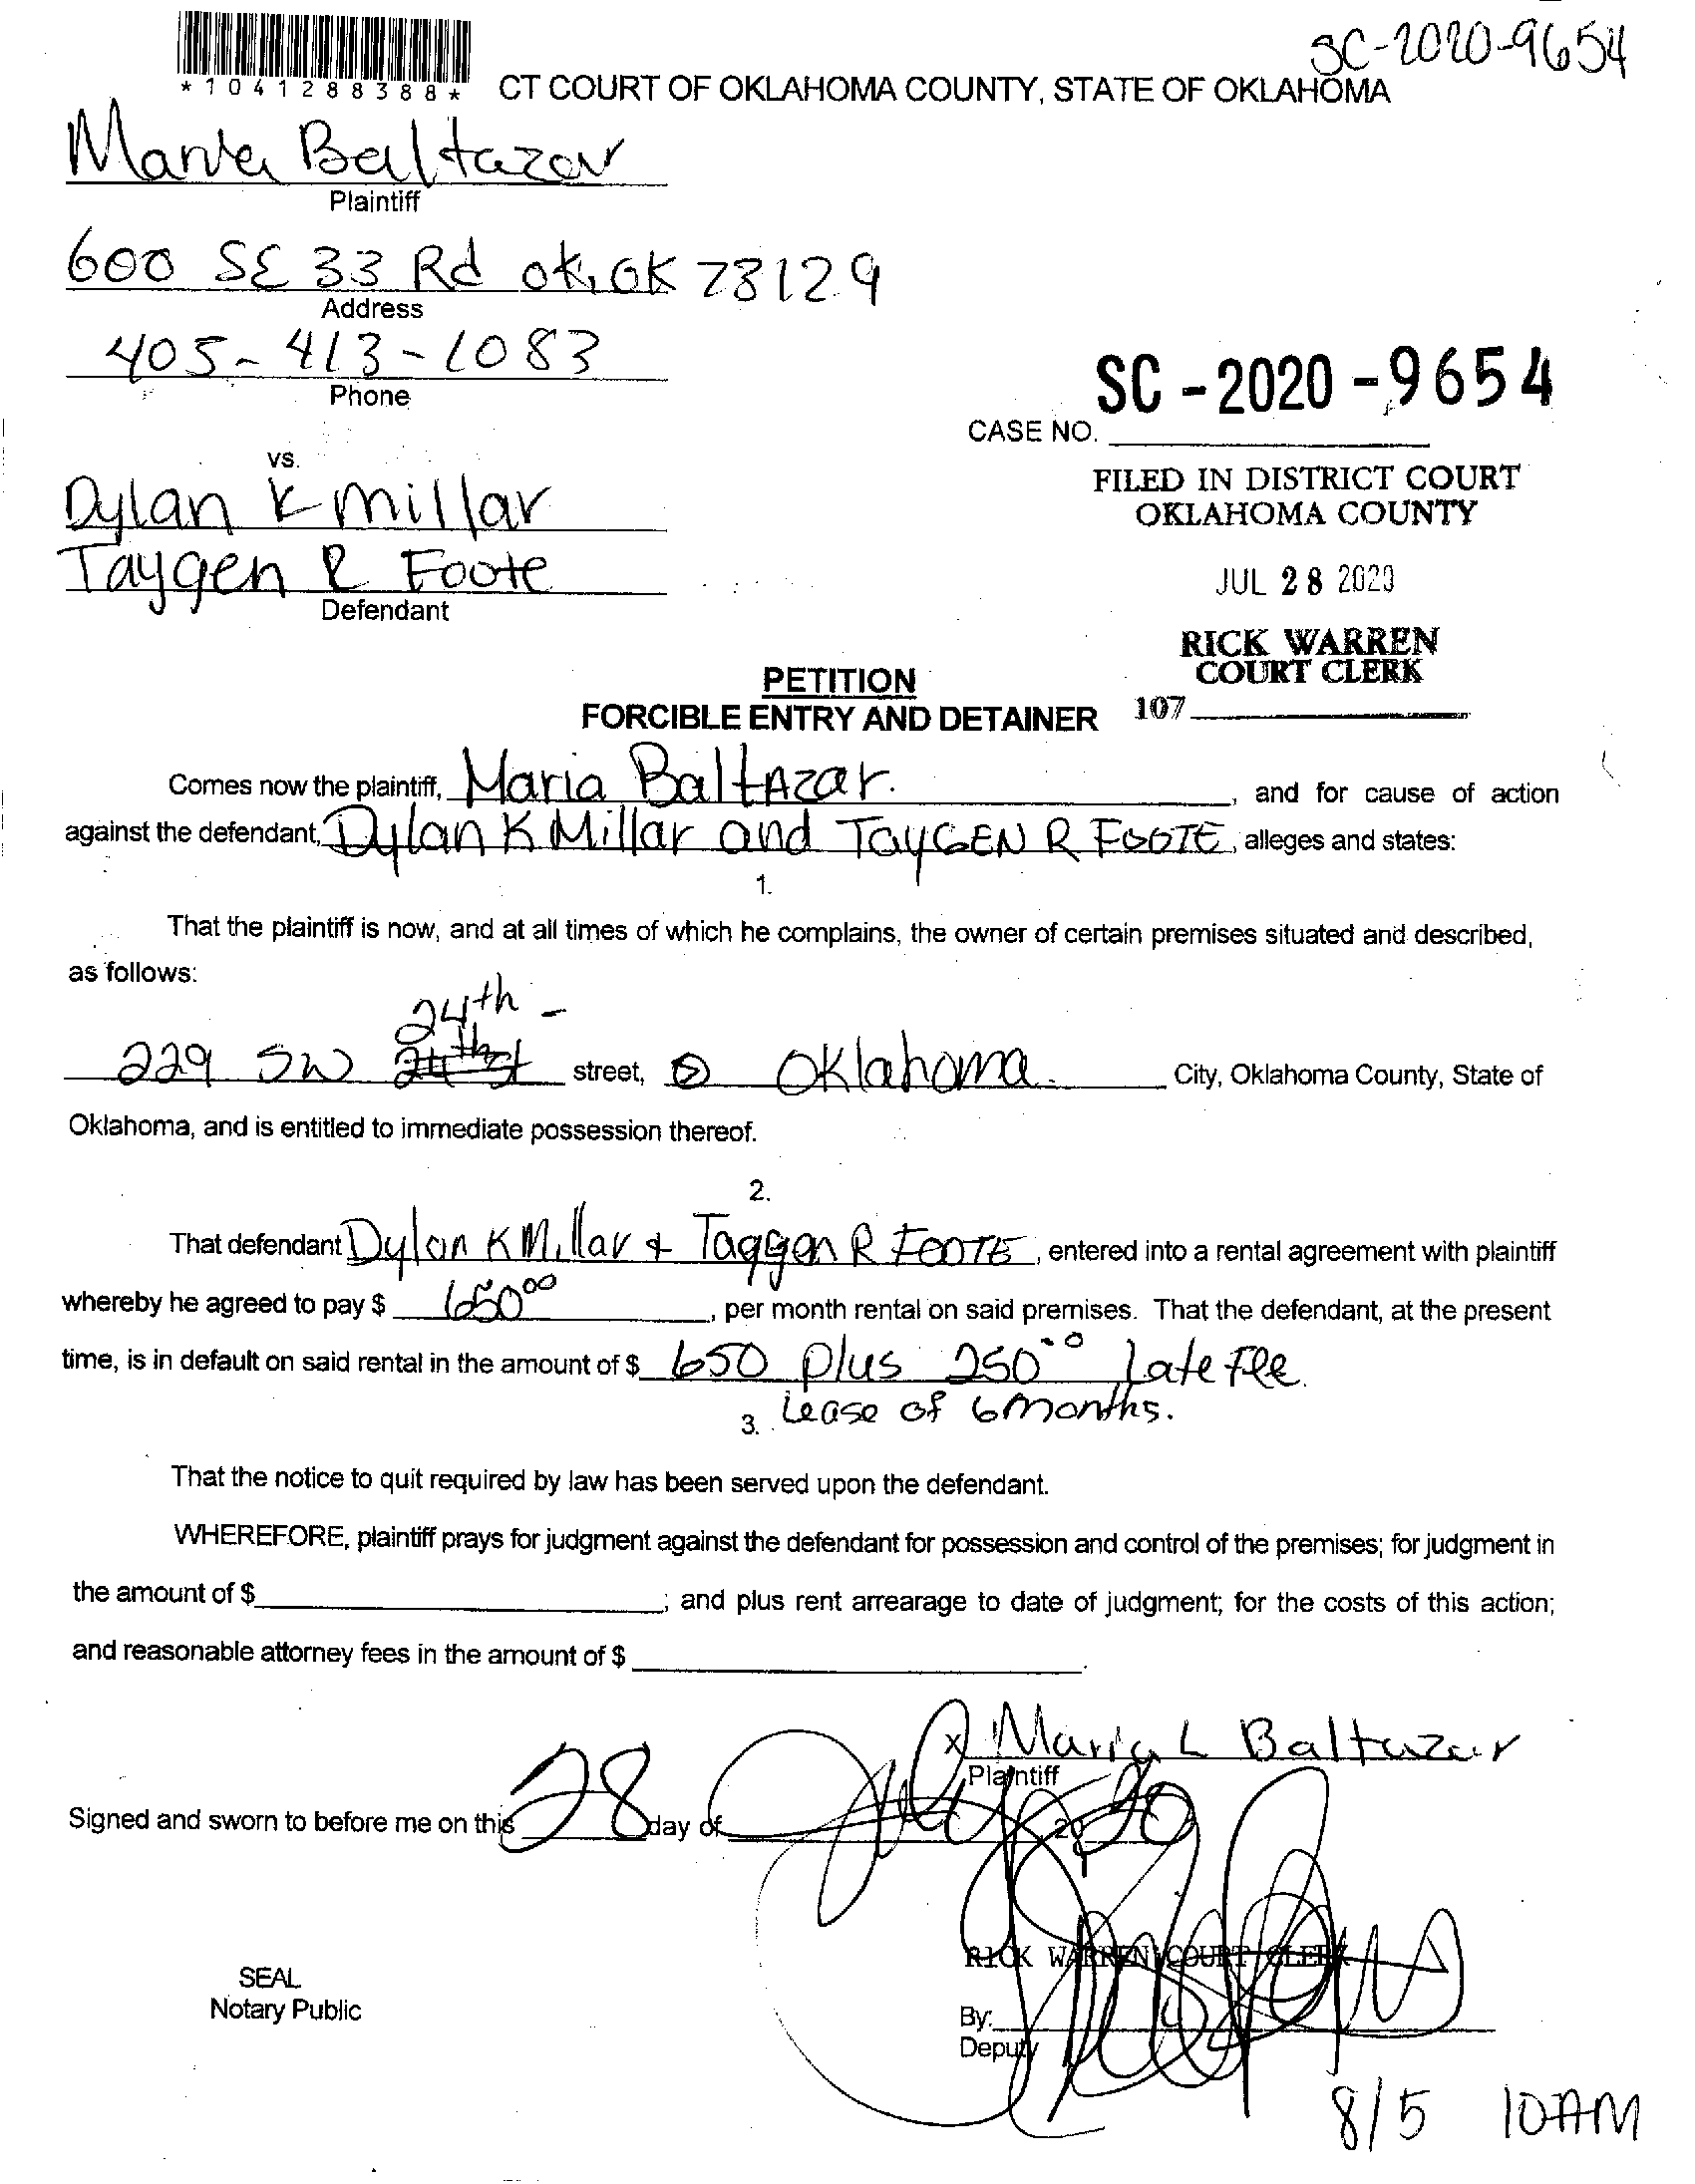 SC-2020-9654
*1041288388*
CT COURT OF OKLAHOMA COUNTY, STATE OF OKLAHOMA
Maria Baltazar
Plaintiff
600 SE 33 Rd OK, OK 73129
Address
405-413-1083
Phone
SC-2020-9654
CASE NO.
vs.
FILED IN DISTRICT COURT
OKLAHOMA COUNTY
Dylan K Millar
Taygen R Foote
Defendant
JUL 28 2020
RICK WARREN
COURT CLERK
107
PETITION
FORCIBLE ENTRY AND DETAINER
Comes now the plaintiff, Maria BaltAzar. , and for cause of action
against the defendant, Dylan K Millar and TayGEN R FOOTE, alleges and states:
1.
That the plaintiff is now, and at all times of which he complains, the owner of certain premises situated and described,
as follows:
24th -
229 SW 24th st street, Oklahoma. City, Oklahoma County, State of
Oklahoma, and is entitled to immediate possession thereof.
2.
That defendant Dylan K Millar + Taygen R FOOTE, entered into a rental agreement with plaintiff
whereby he agreed to pay $ 650.00, per month rental on said premises. That the defendant, at the present
time, is in default on said rental in the amount of $ 650 plus 250.00 Late Fee.
3. Lease of 6 months.
That the notice to quit required by law has been served upon the defendant.
WHEREFORE, plaintiff prays for judgment against the defendant for possession and control of the premises; for judgment in
the amount of $ ; and plus rent arrearage to date of judgment; for the costs of this action;
and reasonable attorney fees in the amount of $ .
X Maria L Baltazar
Plaintiff
Signed and sworn to before me on this 28 day of July, 2020
RICK WARREN COURT CLERK
SEAL
Notary Public
By:
Deputy
8/5 10AM